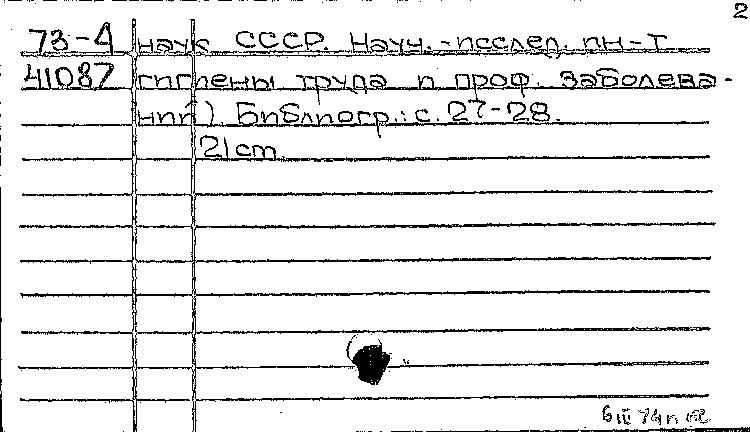 2
73-4 наук СССР. Науч.-исслед. ин-т
41087 гигиены труда и проф. заболева-
ний). Библиогр.: с. 27-28.
21 cm.
6 III 74